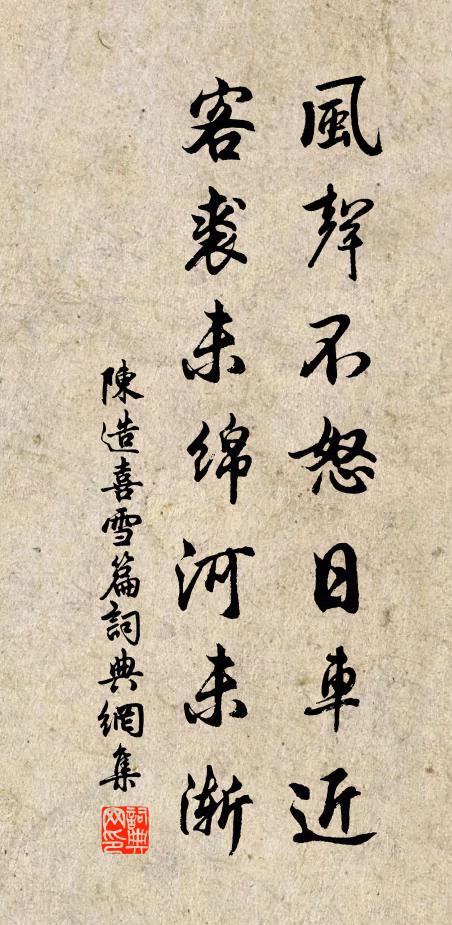 風聲不怒日車近
客裘未綿河未漸
陳造喜雪篇詞典網集
詞典網印